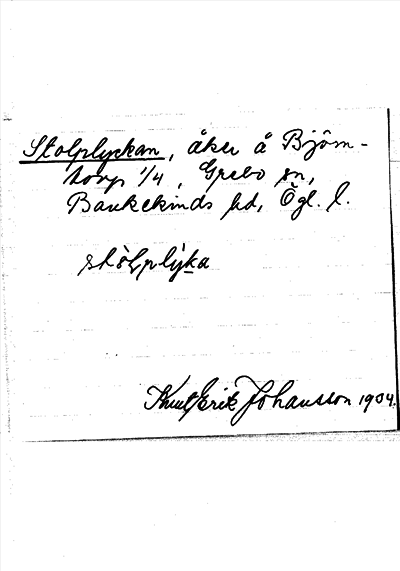 Stolplyckan, åker å Björn-
torp 1/4, Grebo sn,
Bankekinds hd, Ögl. l.
stòlplỳka
Knut Erik Johansson 1934.